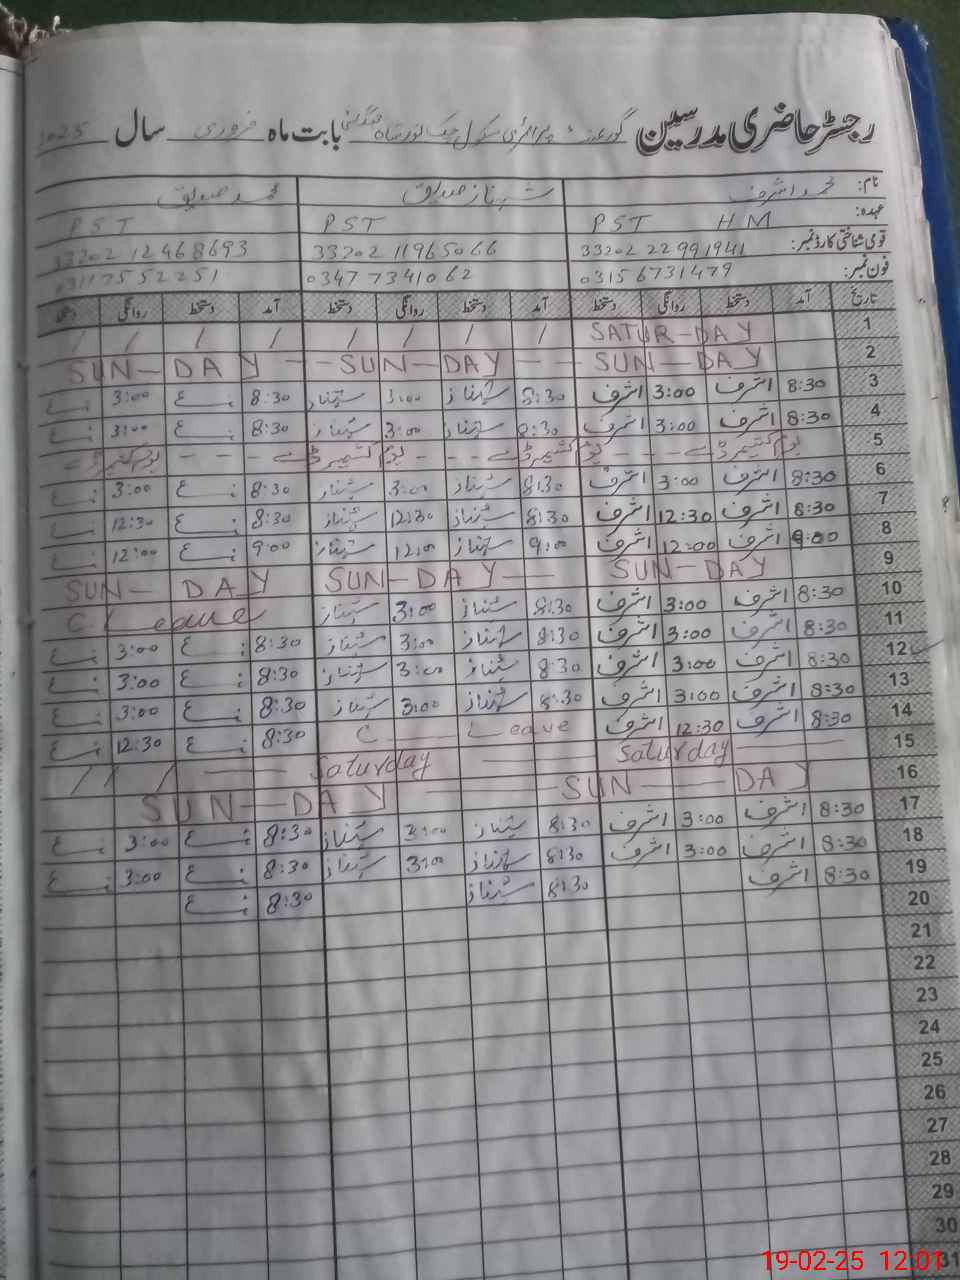 رجسٹر حاضری مدرسین گورنمنٹ پرائمری سکول چک نور شاہ بابت ماہ فروری سال 2025
نام: محمد اشرف شہناز صدیق محمد صدیق
عہدہ: PST HM PST PST
قومی شناختی کارڈ نمبر: 33202 22991941 33202 11965066 33202 12468693
فون نمبر: 03156731479 03477341062 03117552251
تاریخ آمد دستخط روانگی دستخط آمد دستخط روانگی دستخط آمد دستخط روانگی دستخط
1 SATUR-DAY / / / / / / / /
2 SUN-DAY --- SUN-DAY -- SUN-DAY
3 8:30 اشرف 3:00 اشرف 8:30 شہناز 3:00 شہناز 8:30 3:00
4 8:30 اشرف 3:00 اشرف 8:30 شہناز 3:00 شہناز 8:30 3:00
5 یوم کشمیر ڈے --- یوم کشمیر ڈے --- یوم کشمیر ڈے --- یوم کشمیر ڈے
6 8:30 اشرف 3:00 اشرف 8:30 شہناز 3:00 شہناز 8:30 3:00
7 8:30 اشرف 12:30 اشرف 8:30 شہناز 12:30 شہناز 8:30 12:30
8 9:00 اشرف 12:00 اشرف 9:00 شہناز 12:00 شہناز 9:00 12:00
9 SUN-DAY SUN-DAY SUN-DAY
10 8:30 اشرف 3:00 اشرف 8:30 شہناز 3:00 شہناز C. Leave
11 8:30 اشرف 3:00 اشرف 8:30 شہناز 3:00 شہناز 8:30 3:00
12 8:30 اشرف 3:00 اشرف 8:30 شہناز 3:00 شہناز 8:30 3:00
13 8:30 اشرف 3:00 اشرف 8:30 شہناز 3:00 شہناز 8:30 3:00
14 8:30 اشرف 12:30 اشرف C Leave 8:30 12:30
15 Saturday Saturday / / /
16 SUN-DAY SUN-DAY
17 8:30 اشرف 3:00 اشرف 8:30 شہناز 3:00 شہناز 8:30 3:00
18 8:30 اشرف 3:00 اشرف 8:30 شہناز 3:00 شہناز 8:30 3:00
19 8:30 اشرف 8:30 شہناز 8:30
20
21
22
23
24
25
26
27
28
29
30
31
19-02-25 12:01